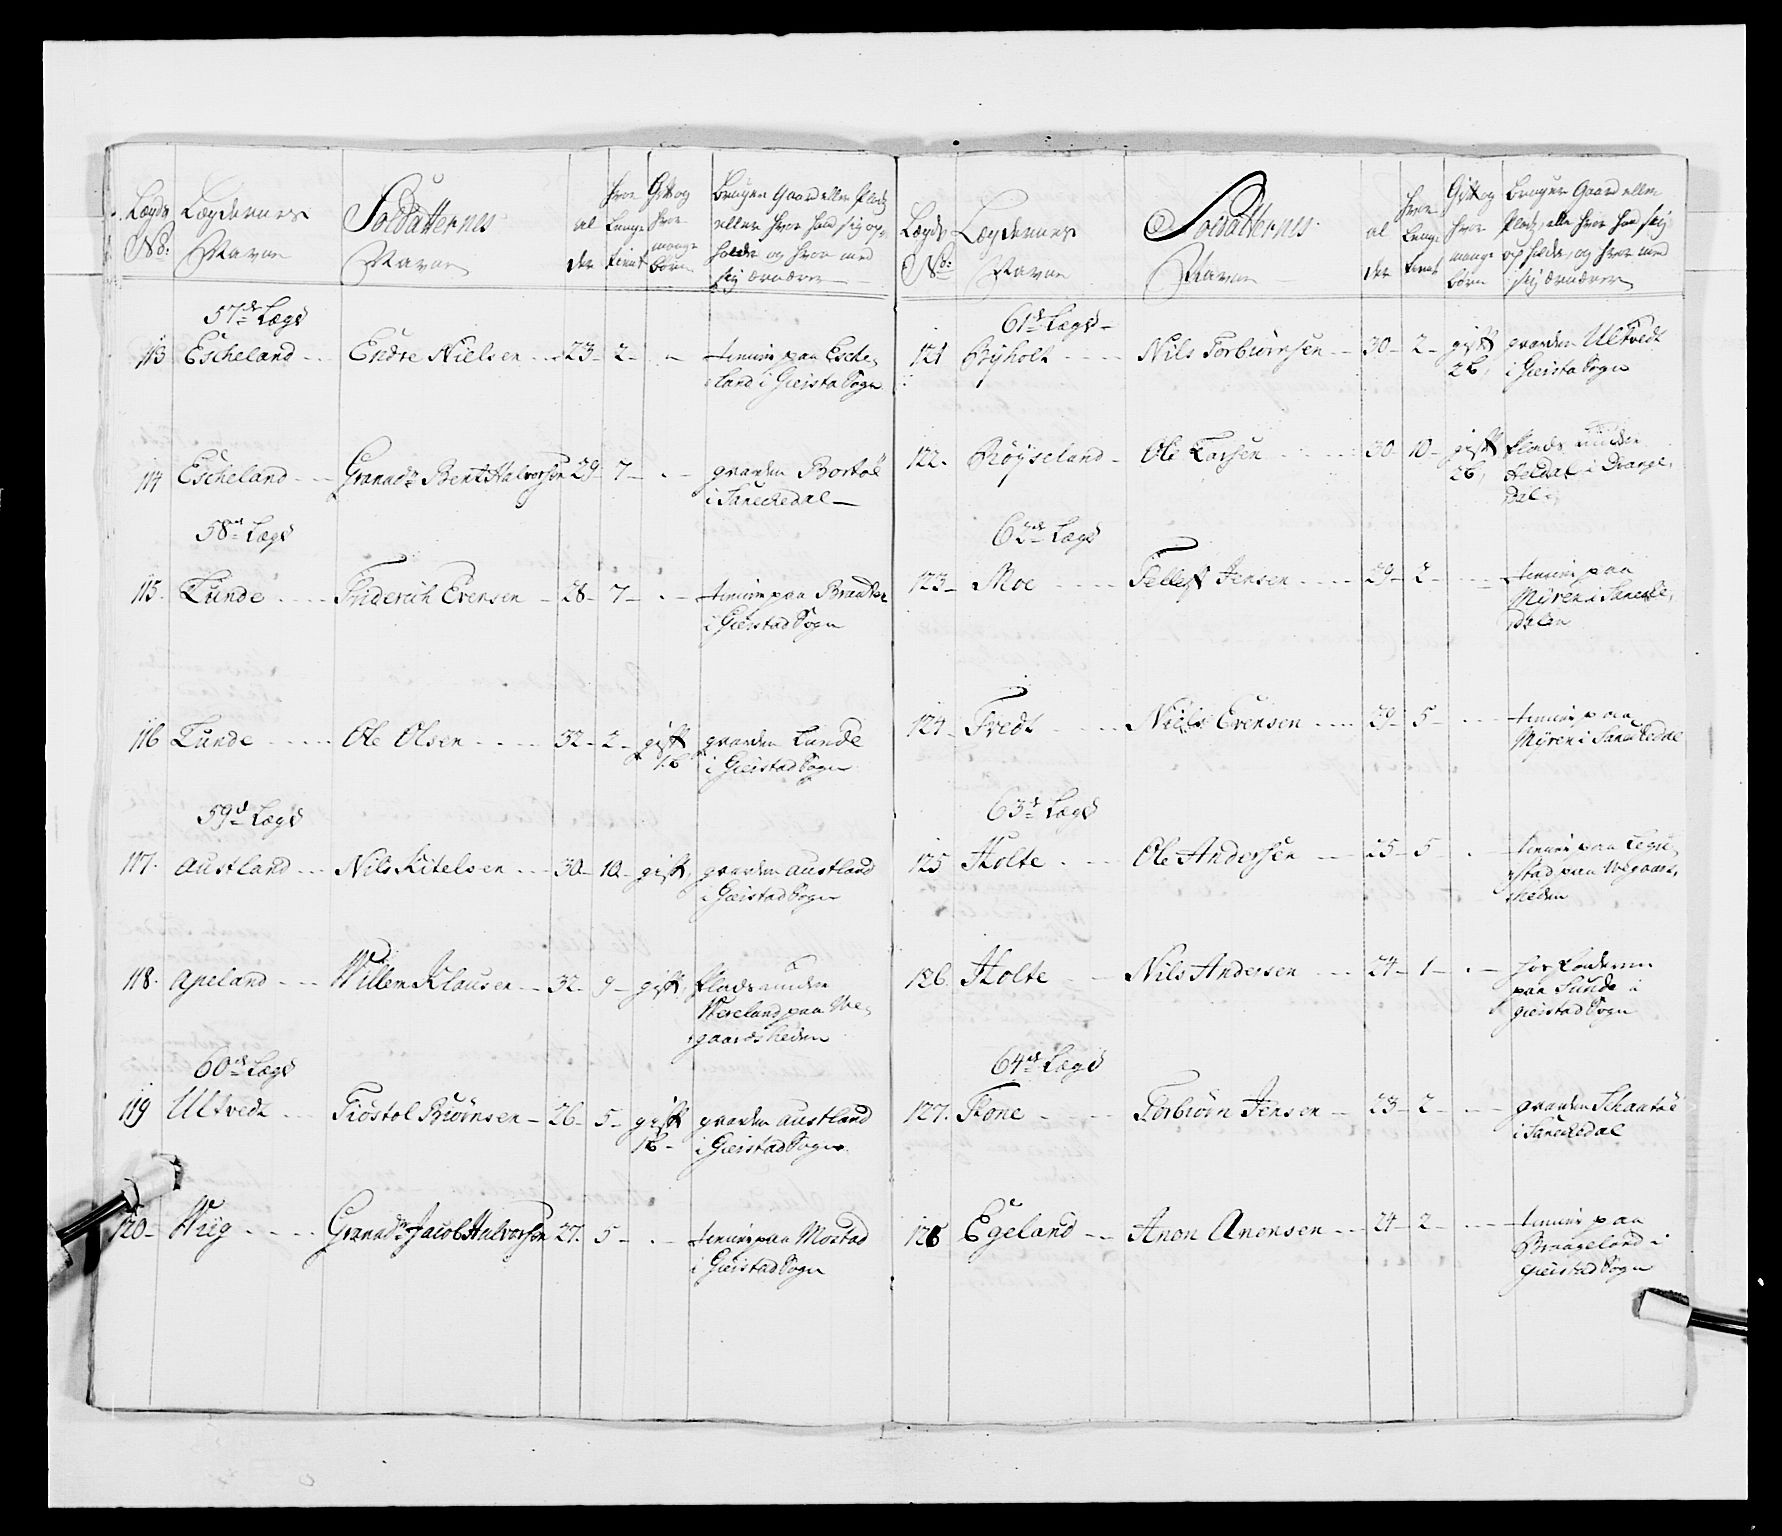 Lægds No: | Lægdernes Navne | Soldatternes Navne | al der | hvor lenge tient | Gift og hvor mange børn | bruger Gaard eller Plads eller hvor hand sig op holder og hvor med sig ernærer
57de Lægd
113 Escheland -- Endre Nielsen -- 23 - 2 - . - tiener paa Esche
land i Gieista Sogn
114 Escheland -- Granadr Bent Halvorsen 29 - 7 - . - gaarden Bortøe
i Sanekedal
58de Lægd
115. Lunde --- Friderich Evensen - 28 - 7 - . - tiener paa Brandter
i Gieistad Sogn
116 Lunde ---- Ole Olsen ---- 32 - 2 - gift gaarden Lunde
1.b i Gieistad Sogn
59de Lægd
117. Austland -- Nils Kitelsen -- 30 - 10 - gift, gaarden Austland
i Gieistad Sogn
118. Apeland -- Willem Klausen -- 32 - 9 - gift, Plads under
Wereland paa We
gaardsheden
60de Lægd
119 Ultvedt -- Tiostol Biørnsen - 26 - 5 - gift gaarden Austland
1b - i Gieistad Sogn
120 - Wiig ---- Granadr Jacob Halvorsen 27. 5 - . - tiener paa Mostad
i Gieistad Sogn
Lægds No: | Lægdernes Navne | Soldatternes Navne | al der | hvor lenge tient | Gift og hvor mange børn | bruger Gaard eller Plads, eller hvor hand sig opholder, og hvor med sig ernærer
61de Lægd
121 Ryholt --- Nils Torbiørnsen -- 30 - 2 - gift gaarden Ultvedt
2b, i Gieista Sogn
122. Røyseland - Ole Larsen ---- 30 - 10 - gift Plads under
2b, Heldal i Drange
dal
62de Lægd
123 - Moe --- Tellef Jensen --- 29 - 2 ---- tiener paa
Myren i Saneke
dalen
124 - Tvedt --- Niels Evensen --- 29 - 5 - --- tiener paa
Myren i Sanekedal
63de Lægd
125 Holte --- Ole Andersen -- 25 - 5 - . - tiener paa
stad paa Wegaars
heden
126. Holte - Nils Andersen --- 24 - 1 - . - hos Foderen
paa Sunde i
Gieistad Sogn
64de Lægd
127. Tone --- Torbiørn Jensen -- 23 - 2 - -- gaarden Skaatøe
i Sanekedal
128 Egeland -- Anon Anonsen -- 24 - 2 - --- tiener paa
Braageland i
Gieistad Sogn